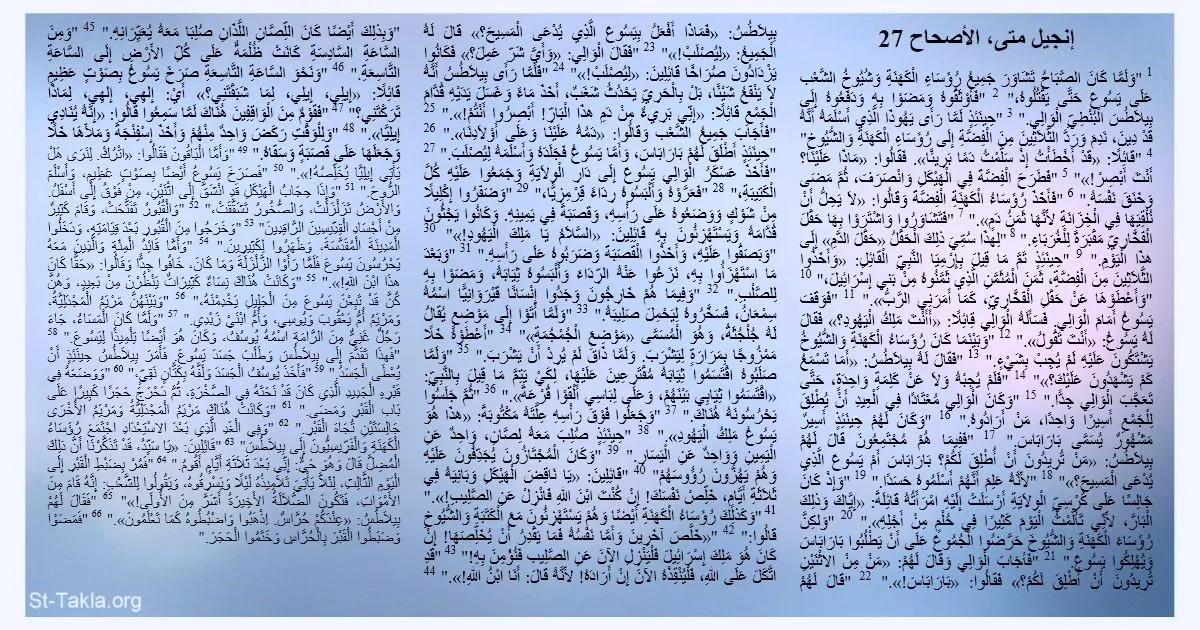 إنجيل متى، الأصحاح 27
1 "وَلَمَّا كَانَ الصَّبَاحُ تَشَاوَرَ جَمِيعُ رُؤَسَاءِ الْكَهَنَةِ وَشُيُوخُ الشَّعْبِ
عَلَى يَسُوعَ حَتَّى يَقْتُلُوهُ،" 2 "فَأَوْثَقُوهُ وَمَضَوْا بِهِ وَدَفَعُوهُ إِلَى
بِيلاَطُسَ الْبُنْطِيِّ الْوَالِي." 3 "حِينَئِذٍ لَمَّا رَأَى يَهُوذَا الَّذِي أَسْلَمَهُ أَنَّهُ
قَدْ دِينَ، نَدِمَ وَرَدَّ الثَّلاَثِينَ مِنَ الْفِضَّةِ إِلَى رُؤَسَاءِ الْكَهَنَةِ وَالشُّيُوخِ"
4 "قَائِلًا: «قَدْ أَخْطَأْتُ إِذْ سَلَّمْتُ دَمًا بَرِيئًا». فَقَالُوا: «مَاذَا عَلَيْنَا؟
أَنْتَ أَبْصِرْ!»" 5 "فَطَرَحَ الْفِضَّةَ فِي الْهَيْكَلِ وَانْصَرَفَ، ثُمَّ مَضَى
وَخَنَقَ نَفْسَهُ." 6 "فَأَخَذَ رُؤَسَاءُ الْكَهَنَةِ الْفِضَّةَ وَقَالُوا: «لاَ يَحِلُّ أَنْ
نُلْقِيَهَا فِي الْخِزَانَةِ لأَنَّهَا ثَمَنُ دَمٍ»." 7 "فَتَشَاوَرُوا وَاشْتَرَوْا بِهَا حَقْلَ
الْفَخَّارِيِّ مَقْبَرَةً لِلْغُرَبَاءِ." 8 "لِهذَا سُمِّيَ ذلِكَ الْحَقْلُ «حَقْلَ الدَّمِ» إِلَى
هذَا الْيَوْمِ." 9 "حِينَئِذٍ تَمَّ مَا قِيلَ بِإِرْمِيَا النَّبِيِّ الْقَائِلِ: «وَأَخَذُوا
الثَّلاَثِينَ مِنَ الْفِضَّةِ، ثَمَنَ الْمُثَمَّنِ الَّذِي ثَمَّنُوهُ مِنْ بَنِي إِسْرَائِيلَ،" 10
"وَأَعْطَوْهَا عَنْ حَقْلِ الْفَخَّارِيِّ، كَمَا أَمَرَنِي الرَّبُّ»." 11 "فَوَقَفَ
يَسُوعُ أَمَامَ الْوَالِي. فَسَأَلَهُ الْوَالِي قِائِلًا: «أَأَنْتَ مَلِكُ الْيَهُودِ؟» فَقَالَ
لَهُ يَسُوعُ: «أَنْتَ تَقُولُ»." 12 "وَبَيْنَمَا كَانَ رُؤَسَاءُ الْكَهَنَةِ وَالشُّيُوخُ
يَشْتَكُونَ عَلَيْهِ لَمْ يُجِبْ بِشَيْءٍ." 13 "فَقَالَ لَهُ بِيلاَطُسُ: «أَمَا تَسْمَعُ
كَمْ يَشْهَدُونَ عَلَيْكَ؟»" 14 "فَلَمْ يُجِبْهُ وَلاَ عَنْ كَلِمَةٍ وَاحِدَةٍ، حَتَّى
تَعَجَّبَ الْوَالِي جِدًّا." 15 "وَكَانَ الْوَالِي مُعْتَادًا فِي الْعِيدِ أَنْ يُطْلِقَ
لِلْجَمْعِ أَسِيرًا وَاحِدًا، مَنْ أَرَادُوهُ." 16 "وَكَانَ لَهُمْ حِينَئِذٍ أَسِيرٌ
مَشْهُورٌ يُسَمَّى بَارَابَاسَ." 17 "فَفِيمَا هُمْ مُجْتَمِعُونَ قَالَ لَهُمْ
بِيلاَطُسُ: «مَنْ تُرِيدُونَ أَنْ أُطْلِقَ لَكُمْ؟ بَارَابَاسَ أَمْ يَسُوعَ الَّذِي
يُدْعَى الْمَسِيحَ؟»" 18 "لأَنَّهُ عَلِمَ أَنَّهُمْ أَسْلَمُوهُ حَسَدًا." 19 "وَإِذْ كَانَ
جَالِسًا عَلَى كُرْسِيِّ الْوِلاَيَةِ أَرْسَلَتْ إِلَيْهِ امْرَأَتُهُ قَائِلَةً: «إِيَّاكَ وَذلِكَ
الْبَارَّ، لأَنِّي تَأَلَّمْتُ الْيَوْمَ كَثِيرًا فِي حُلْمٍ مِنْ أَجْلِهِ»." 20 "وَلكِنَّ
رُؤَسَاءَ الْكَهَنَةِ وَالشُّيُوخَ حَرَّضُوا الْجُمُوعَ عَلَى أَنْ يَطْلُبُوا بَارَابَاسَ
وَيُهْلِكُوا يَسُوعَ." 21 "فَأجَابَ الْوَالِي وَقَالَ لَهُمْ: «مَنْ مِنْ الاثْنَيْنِ
تُرِيدُونَ أَنْ أُطْلِقَ لَكُمْ؟» فَقَالُوا: «بَارَابَاسَ!»." 22 "قَالَ لَهُمْ
بِيلاَطُسُ: «فَمَاذَا أَفْعَلُ بِيَسُوعَ الَّذِي يُدْعَى الْمَسِيحَ؟» قَالَ لَهُ
الْجَمِيعُ: «لِيُصْلَبْ!»" 23 "فَقَالَ الْوَالِي: «وَأَيَّ شَرّ عَمِلَ؟» فَكَانُوا
يَزْدَادُونَ صُرَاخًا قَائِلِينَ: «لِيُصْلَبْ!»" 24 "فَلَمَّا رَأَى بِيلاَطُسُ أَنَّهُ
لاَ يَنْفَعُ شَيْئًا، بَلْ بِالْحَرِيِّ يَحْدُثُ شَغَبٌ، أَخَذَ مَاءً وَغَسَلَ يَدَيْهِ قُدَّامَ
الْجَمْعِ قَائِلًا: «إِنِّي بَرِيءٌ مِنْ دَمِ هذَا الْبَارِّ! أَبْصِرُوا أَنْتُمْ!»." 25
"فَأَجَابَ جَمِيعُ الشَّعْبِ وَقَالُوا: «دَمُهُ عَلَيْنَا وَعَلَى أَوْلاَدِنَا»." 26
"حِينَئِذٍ أَطْلَقَ لَهُمْ بَارَابَاسَ، وَأَمَّا يَسُوعُ فَجَلَدَهُ وَأَسْلَمَهُ لِيُصْلَبَ." 27
"فَأَخَذَ عَسْكَرُ الْوَالِي يَسُوعَ إِلَى دَارِ الْوِلاَيَةِ وَجَمَعُوا عَلَيْهِ كُلَّ
الْكَتِيبَةِ،" 28 "فَعَرَّوْهُ وَأَلْبَسُوهُ رِدَاءً قِرْمِزِيًّا،" 29 "وَضَفَرُوا إِكْلِيلًا
مِنْ شَوْكٍ وَوَضَعُوهُ عَلَى رَأْسِهِ، وَقَصَبَةً فِي يَمِينِهِ. وَكَانُوا يَجْثُونَ
قُدَّامَهُ وَيَسْتَهْزِئُونَ بِهِ قَائِلِينَ: «السَّلاَمُ يَا مَلِكَ الْيَهُودِ!»" 30
"وَبَصَقُوا عَلَيْهِ، وَأَخَذُوا الْقَصَبَةَ وَضَرَبُوهُ عَلَى رَأْسِهِ." 31 "وَبَعْدَ
مَا اسْتَهْزَأُوا بِهِ، نَزَعُوا عَنْهُ الرِّدَاءَ وَأَلْبَسُوهُ ثِيَابَهُ، وَمَضَوْا بِهِ
لِلصَّلْبِ." 32 "وَفِيمَا هُمْ خَارِجُونَ وَجَدُوا إِنْسَانًا قَيْرَوَانِيًّا اسْمُهُ
سِمْعَانُ، فَسَخَّرُوهُ لِيَحْمِلَ صَلِيبَهُ." 33 "وَلَمَّا أَتَوْا إِلَى مَوْضِعٍ يُقَالُ
لَهُ جُلْجُثَةُ، وَهُوَ الْمُسَمَّى «مَوْضِعَ الْجُمْجُمَةِ»" 34 "أَعْطَوْهُ خَلًّا
مَمْزُوجًا بِمَرَارَةٍ لِيَشْرَبَ. وَلَمَّا ذَاقَ لَمْ يُرِدْ أَنْ يَشْرَبَ." 35 "وَلَمَّا
صَلَبُوهُ اقْتَسَمُوا ثِيَابَهُ مُقْتَرِعِينَ عَلَيْهَا، لِكَيْ يَتِمَّ مَا قِيلَ بِالنَّبِيِّ:
«اقْتَسَمُوا ثِيَابِي بَيْنَهُمْ، وَعَلَى لِبَاسِي أَلْقَوْا قُرْعَةً»." 36 "ثُمَّ جَلَسُوا
يَحْرُسُونَهُ هُنَاكَ." 37 "وَجَعَلُوا فَوْقَ رَأْسِهِ عِلَّتَهُ مَكْتُوبَةً: «هذَا هُوَ
يَسُوعُ مَلِكُ الْيَهُودِ»." 38 "حِينَئِذٍ صُلِبَ مَعَهُ لِصَّانِ، وَاحِدٌ عَنِ
الْيَمِينِ وَوَاحِدٌ عَنِ الْيَسَارِ." 39 "وَكَانَ الْمُجْتَازُونَ يُجَدِّفُونَ عَلَيْهِ
وَهُمْ يَهُزُّونَ رُؤُوسَهُمْ" 40 "قَائِلِينَ: «يَا نَاقِضَ الْهَيْكَلِ وَبَانِيَهُ فِي
ثَلاَثَةِ أَيَّامٍ، خَلِّصْ نَفْسَكَ! إِنْ كُنْتَ ابْنَ اللهِ فَانْزِلْ عَنِ الصَّلِيبِ!»."
41 "وَكَذلِكَ رُؤَسَاءُ الْكَهَنَةِ أَيْضًا وَهُمْ يَسْتَهْزِئُونَ مَعَ الْكَتَبَةِ وَالشُّيُوخِ
قَالُوا:" 42 "«خَلَّصَ آخَرِينَ وَأَمَّا نَفْسُهُ فَمَا يَقْدِرُ أَنْ يُخَلِّصَهَا! إِنْ
كَانَ هُوَ مَلِكَ إِسْرَائِيلَ فَلْيَنْزِلِ الآنَ عَنِ الصَّلِيبِ فَنُؤْمِنَ بِهِ!" 43 "قَدِ
اتَّكَلَ عَلَى اللهِ، فَلْيُنْقِذْهُ الآنَ إِنْ أَرَادَهُ! لأَنَّهُ قَالَ: أَنَا ابْنُ اللهِ!»." 44
"وَبِذلِكَ أَيْضًا كَانَ اللِّصَّانِ اللَّذَانِ صُلِبَا مَعَهُ يُعَيِّرَانِهِ." 45 "وَمِنَ
السَّاعَةِ السَّادِسَةِ كَانَتْ ظُلْمَةٌ عَلَى كُلِّ الأَرْضِ إِلَى السَّاعَةِ
التَّاسِعَةِ." 46 "وَنَحْوَ السَّاعَةِ التَّاسِعَةِ صَرَخَ يَسُوعُ بِصَوْتٍ عَظِيمٍ
قَائِلًا: «إِيلِي، إِيلِي، لِمَا شَبَقْتَنِي؟» أَيْ: إِلهِي، إِلهِي، لِمَاذَا
تَرَكْتَنِي؟" 47 "فَقَوْمٌ مِنَ الْوَاقِفِينَ هُنَاكَ لَمَّا سَمِعُوا قَالُوا: «إِنَّهُ يُنَادِي
إِيلِيَّا»." 48 "وَلِلْوَقْتِ رَكَضَ وَاحِدٌ مِنْهُمْ وَأَخَذَ إِسْفِنْجَةً وَمَلأَهَا خَلًّا
وَجَعَلَهَا عَلَى قَصَبَةٍ وَسَقَاهُ." 49 "وَأَمَّا الْبَاقُونَ فَقَالُوا: «اتْرُكْ. لِنَرَى هَلْ
يَأْتِي إِيلِيَّا يُخَلِّصُهُ!»." 50 "فَصَرَخَ يَسُوعُ أَيْضًا بِصَوْتٍ عَظِيمٍ، وَأَسْلَمَ
الرُّوحَ." 51 "وَإِذَا حِجَابُ الْهَيْكَلِ قَدِ انْشَقَّ إِلَى اثْنَيْنِ، مِنْ فَوْقُ إِلَى أَسْفَلُ.
وَالأَرْضُ تَزَلْزَلَتْ، وَالصُّخُورُ تَشَقَّقَتْ،" 52 "وَالْقُبُورُ تَفَتَّحَتْ، وَقَامَ كَثِيرٌ
مِنْ أَجْسَادِ الْقِدِّيسِينَ الرَّاقِدِينَ" 53 "وَخَرَجُوا مِنَ الْقُبُورِ بَعْدَ قِيَامَتِهِ، وَدَخَلُوا
الْمَدِينَةَ الْمُقَدَّسَةَ، وَظَهَرُوا لِكَثِيرِينَ." 54 "وَأَمَّا قَائِدُ الْمِئَةِ وَالَّذِينَ مَعَهُ
يَحْرُسُونَ يَسُوعَ فَلَمَّا رَأَوْا الزَّلْزَلَةَ وَمَا كَانَ، خَافُوا جِدًّا وَقَالُوا: «حَقًّا كَانَ
هذَا ابْنَ اللهِ!»." 55 "وَكَانَتْ هُنَاكَ نِسَاءٌ كَثِيرَاتٌ يَنْظُرْنَ مِنْ بَعِيدٍ، وَهُنَّ
كُنَّ قَدْ تَبِعْنَ يَسُوعَ مِنَ الْجَلِيلِ يَخْدِمْنَهُ،" 56 "وَبَيْنَهُنَّ مَرْيَمُ الْمَجْدَلِيَّةُ،
وَمَرْيَمُ أُمُّ يَعْقُوبَ وَيُوسِي، وَأُمُّ ابْنَيْ زَبْدِي." 57 "وَلَمَّا كَانَ الْمَسَاءُ، جَاءَ
رَجُلٌ غَنِيٌّ مِنَ الرَّامَةِ اسْمُهُ يُوسُفُ، وَكَانَ هُوَ أَيْضًا تِلْمِيذًا لِيَسُوعَ." 58
"فَهذَا تَقَدَّمَ إِلَى بِيلاَطُسَ وَطَلَبَ جَسَدَ يَسُوعَ. فَأَمَرَ بِيلاَطُسُ حِينَئِذٍ أَنْ
يُعْطَى الْجَسَدُ." 59 "فَأَخَذَ يُوسُفُ الْجَسَدَ وَلَفَّهُ بِكَتَّانٍ نَقِيٍّ،" 60 "وَوَضَعَهُ فِي
قَبْرِهِ الْجَدِيدِ الَّذِي كَانَ قَدْ نَحَتَهُ فِي الصَّخْرَةِ، ثُمَّ دَحْرَجَ حَجَرًا كَبِيرًا عَلَى
بَاب الْقَبْرِ وَمَضَى." 61 "وَكَانَتْ هُنَاكَ مَرْيَمُ الْمَجْدَلِيَّةُ وَمَرْيَمُ الأُخْرَى
جَالِسَتَيْنِ تُجَاهَ الْقَبْرِ." 62 "وَفِي الْغَدِ الَّذِي بَعْدَ الاسْتِعْدَادِ اجْتَمَعَ رُؤَسَاءُ
الْكَهَنَةِ وَالْفَرِّيسِيُّونَ إِلَى بِيلاَطُسَ" 63 "قَائِلِينَ: «يَا سَيِّدُ، قَدْ تَذَكَّرْنَا أَنَّ ذلِكَ
الْمُضِلَّ قَالَ وَهُوَ حَيٌّ: إِنِّي بَعْدَ ثَلاَثَةِ أَيَّامٍ أَقُومُ." 64 "فَمُرْ بِضَبْطِ الْقَبْرِ إِلَى
الْيَوْمِ الثَّالِثِ، لِئَلاَّ يَأْتِيَ تَلاَمِيذُهُ لَيْلًا وَيَسْرِقُوهُ، وَيَقُولُوا لِلشَّعْبِ: إِنَّهُ قَامَ مِنَ
الأَمْوَاتِ، فَتَكُونَ الضَّلاَلَةُ الأَخِيرَةُ أَشَرَّ مِنَ الأُولَى!»" 65 "فَقَالَ لَهُمْ
بِيلاَطُسُ: «عِنْدَكُمْ حُرَّاسٌ. اِذْهَبُوا وَاضْبُطُوهُ كَمَا تَعْلَمُونَ»." 66 "فَمَضَوْا
وَضَبَطُوا الْقَبْرَ بِالْحُرَّاسِ وَخَتَمُوا الْحَجَرَ."
St-Takla.org